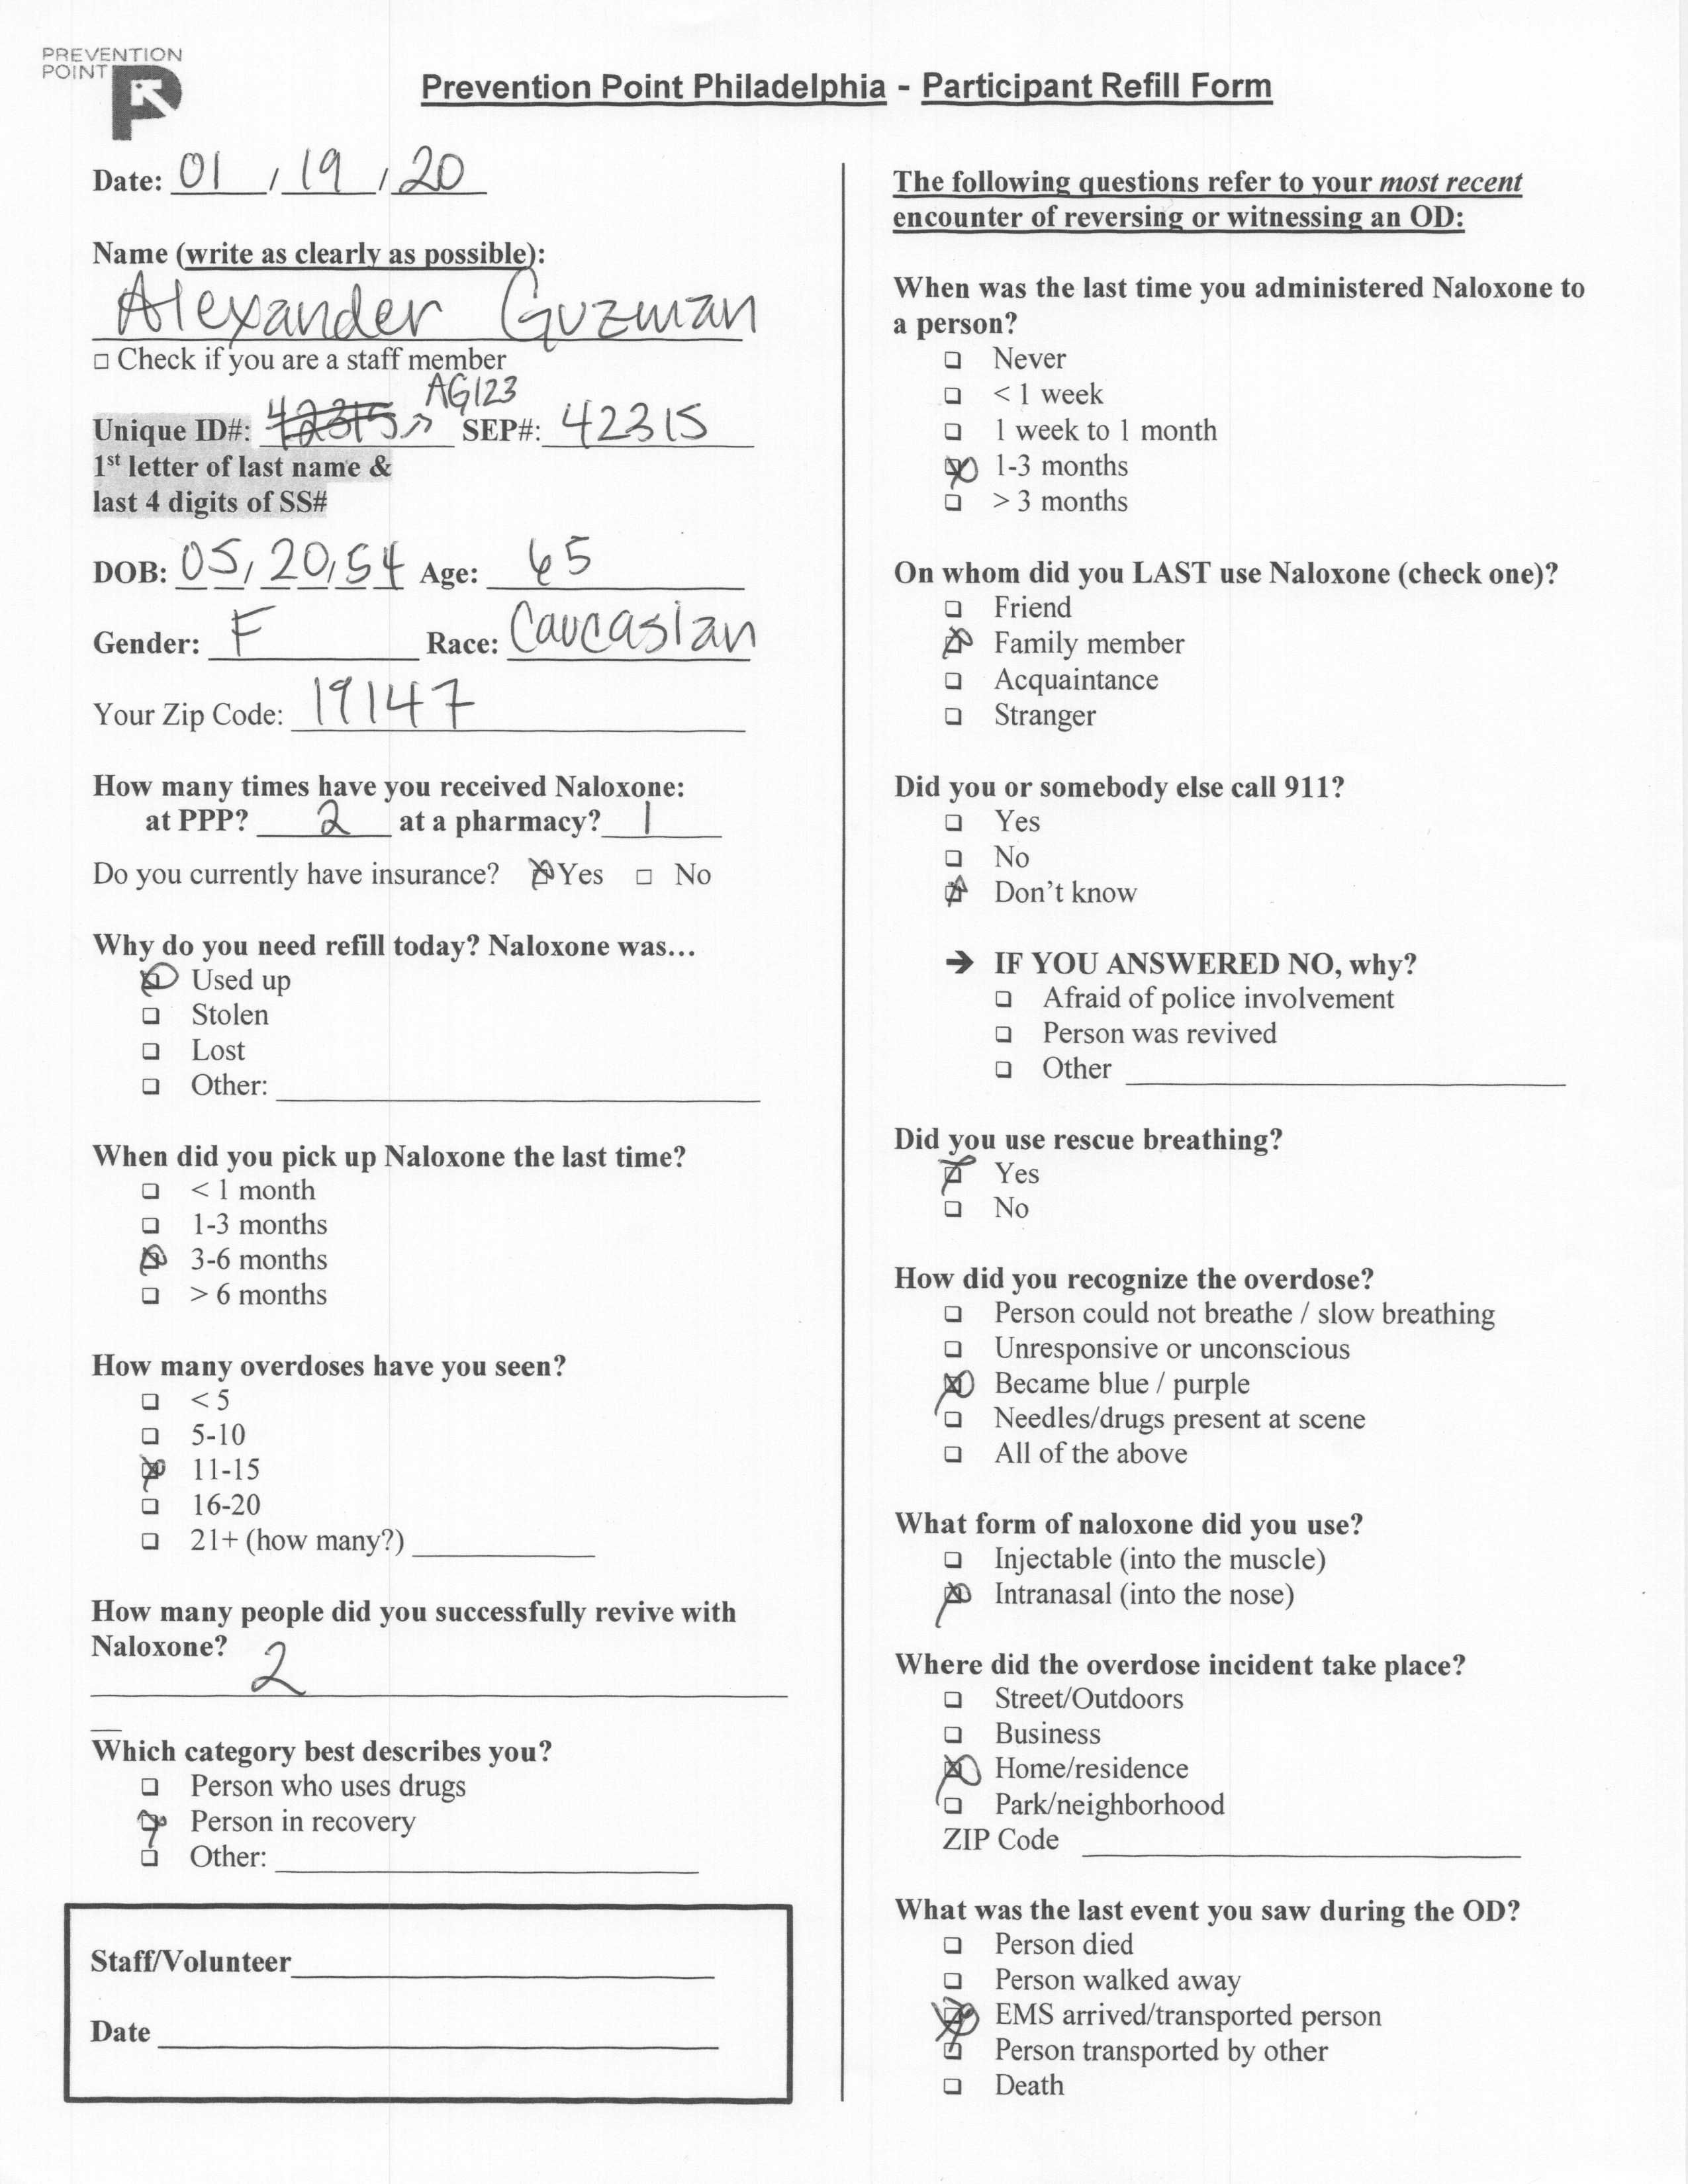 PREVENTION
POINT
Prevention Point Philadelphia - Participant Refill Form
Date: 01 / 19 / 20
Name (write as clearly as possible):
Alexander Guzman
□ Check if you are a staff member
AG123
Unique ID#: 42315 SEP#: 42315
1st letter of last name &
last 4 digits of SS#
DOB: 05/20/54 Age: 65
Gender: F Race: Caucasian
Your Zip Code: 19147
How many times have you received Naloxone:
at PPP? 2 at a pharmacy? 1
Do you currently have insurance? ☒ Yes □ No
Why do you need refill today? Naloxone was…
☒ Used up
□ Stolen
□ Lost
□ Other:
When did you pick up Naloxone the last time?
□ < 1 month
□ 1-3 months
☒ 3-6 months
□ > 6 months
How many overdoses have you seen?
□ < 5
□ 5-10
☒ 11-15
□ 16-20
□ 21+ (how many?)
How many people did you successfully revive with
Naloxone?
2
Which category best describes you?
□ Person who uses drugs
☒ Person in recovery
□ Other:
Staff/Volunteer
Date
The following questions refer to your most recent
encounter of reversing or witnessing an OD:
When was the last time you administered Naloxone to
a person?
□ Never
□ < 1 week
□ 1 week to 1 month
☒ 1-3 months
□ > 3 months
On whom did you LAST use Naloxone (check one)?
□ Friend
☒ Family member
□ Acquaintance
□ Stranger
Did you or somebody else call 911?
□ Yes
□ No
☒ Don't know
➔ IF YOU ANSWERED NO, why?
□ Afraid of police involvement
□ Person was revived
□ Other
Did you use rescue breathing?
☒ Yes
□ No
How did you recognize the overdose?
□ Person could not breathe / slow breathing
□ Unresponsive or unconscious
☒ Became blue / purple
□ Needles/drugs present at scene
□ All of the above
What form of naloxone did you use?
□ Injectable (into the muscle)
☒ Intranasal (into the nose)
Where did the overdose incident take place?
□ Street/Outdoors
□ Business
☒ Home/residence
□ Park/neighborhood
ZIP Code
What was the last event you saw during the OD?
□ Person died
□ Person walked away
☒ EMS arrived/transported person
□ Person transported by other
□ Death